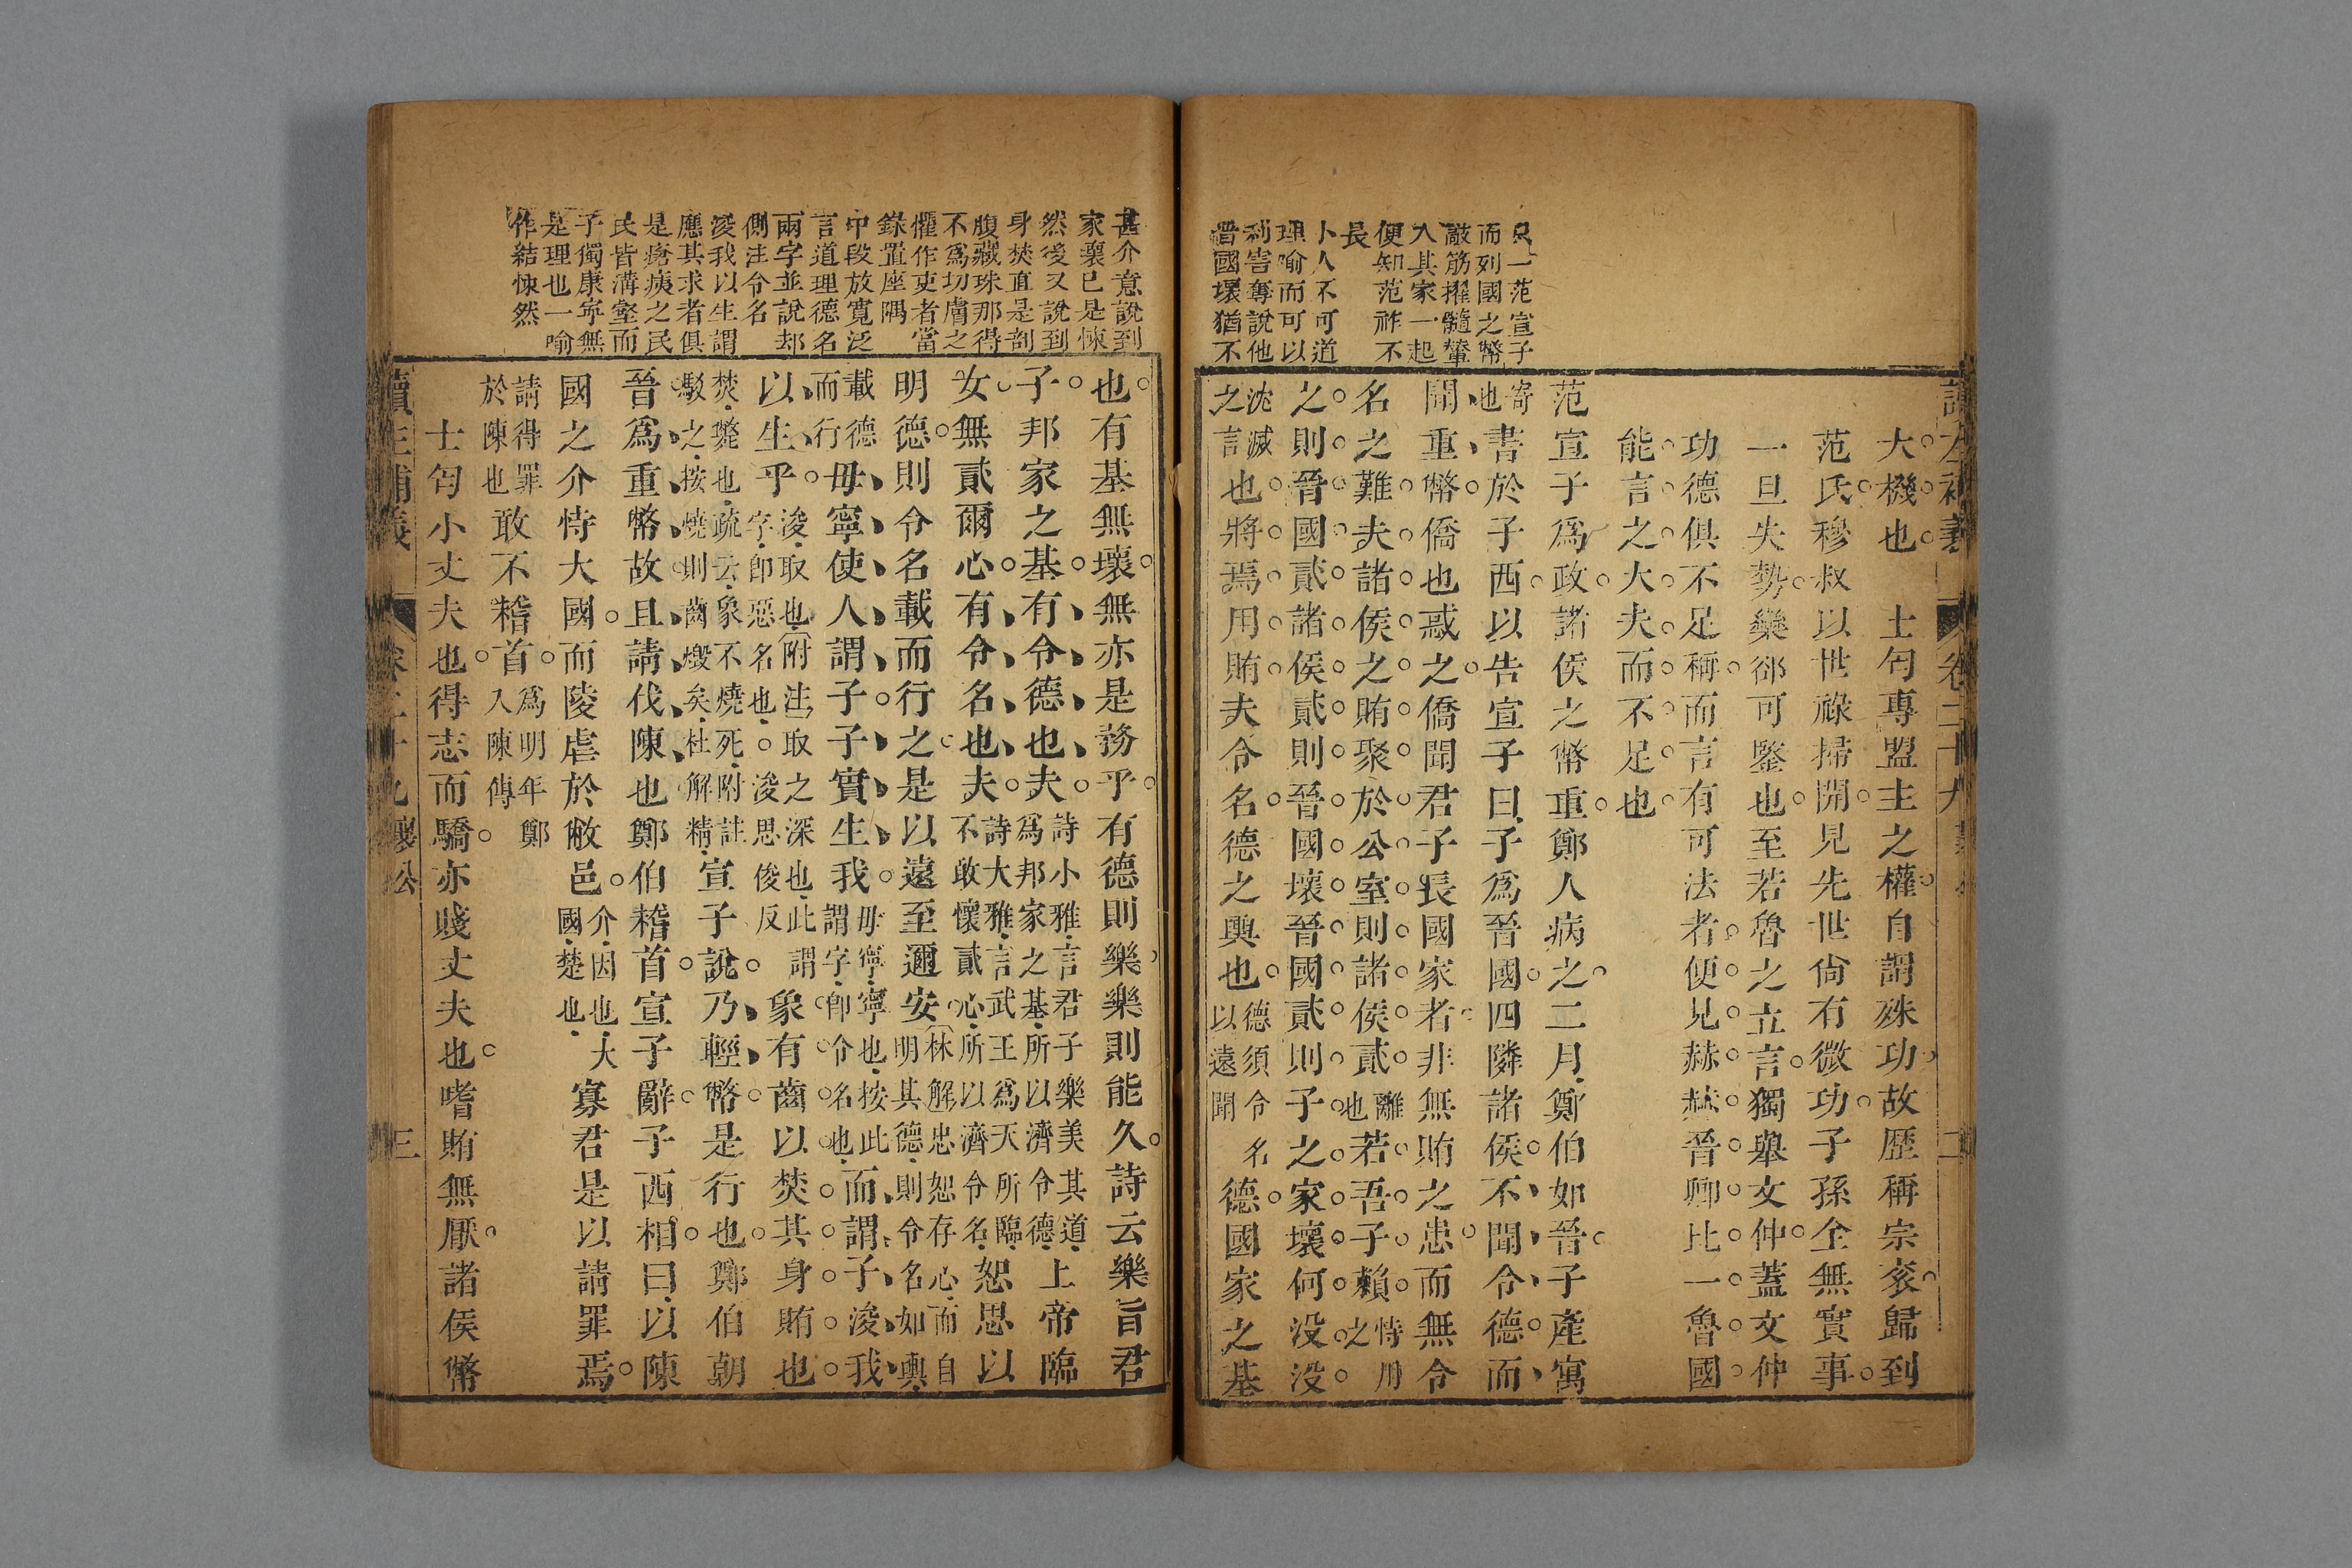 只一范宣子
而列國之幣
敲筋擢髓輦
入其家一起
便知范祚不
長
小人不可道
理喻而可以
利害奪說他
晋國壞猶不
卷二十九
二
大機也　士匄專盟主之權自謂殊功故歷稱宗衮歸到
范氏穆叔以世祿掃開見先世尙有微功子孫全無實事
一旦失勢欒郤可鑒也至若魯之立言獨舉文仲蓋文仲
功德俱不足稱而言有可法者便見赫赫晉卿比一魯國
能言之大夫而不足也
范宣子爲政諸侯之幣重鄭人病之二月鄭伯如晉子產寓
寄也書於子西以告宣子曰子爲晉國四隣諸侯不聞令德而
聞重幣僑也惑之僑聞君子長國家者非無賄之患而無令
名之難夫諸侯之賄聚於公室則諸侯貳離也若吾子賴恃用之
之則晉國貳諸侯貳則晉國壞晉國貳則子之家壞何没没
沈滅之言也將焉用賄夫令名德之輿也德須令名以遠聞德國家之基
甚介意說到
家壞已是悚
然後又說到
身焚直是剖
腹藏珠那得
不爲切膚之
懼作吏者當
錄置座隅
中段放寬泛
言道理德名
兩字並說却
側注令名
浚我以生謂
應其求者俱
是瘡痍之民
民皆溝壑而
子獨康寧無
是理也一喻
作結悚然
也有基無壞無亦是務乎有德則樂樂則能久詩云樂旨君
子邦家之基有令德也夫詩小雅言君子樂美其道爲邦家之基所以濟令德上帝臨
女無貳爾心有令名也夫詩大雅言武王爲天所臨不敢懷貳心所以濟令名恕思以
明德則令名載而行之是以遠至邇安林解忠恕存心而自明其德則令名如輿
載德而行毋寧使人謂子子實生我毋寧寧也按此謂字卽令名也而謂子浚我
以生乎浚取也附注取之深也此謂字卽惡名也浚思俊反象有齒以焚其身賄也
焚斃也疏云象不燒死附註駁之按燒則齒燬矣杜解精宣子說乃輕幣是行也鄭伯朝
晉爲重幣故且請伐陳也鄭伯稽首宣子辭子西相曰以陳
國之介恃大國而陵虐於敝邑介因也大國楚也寡君是以請罪焉
請得罪於陳也敢不稽首爲明年鄭入陳傳
士匄小丈夫也得志而驕亦賤丈夫也嗜賄無厭諸侯幣
讀左補義　卷二十九　襄公　三